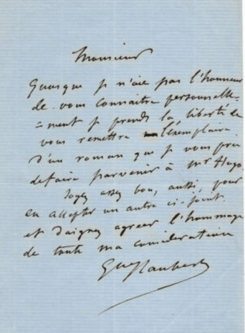 Monsieur
Quoique je n'aie pas l'honneur
de vous connaître personnelle-
ment je prends la liberté de
vous remettre l'exemplaire
d'un roman que je vous prie
de faire parvenir à Mr Hugo
Soyez assez bon, aussi, pour
en accepter un autre ci-joint
et daignez agréer l'hommage
de toute ma considération
Gve Flaubert